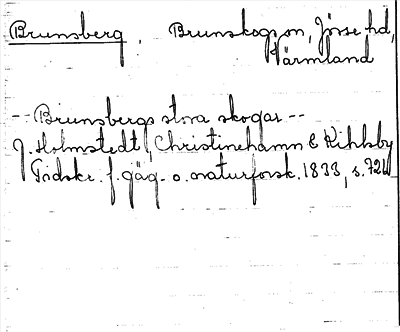 Brunsberg, Brunskogs sn, Jösse hd,
Värmland
-- Brunsbergs stora skogar --
J. Holmstedt, Christinehamn &
Tidskr. f. jäg. o. naturforsk. 1833, s. 721